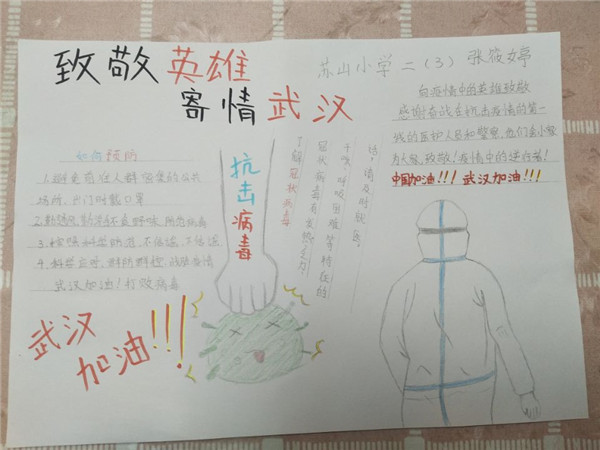 致敬英雄
寄情武汉
苏山小学 二（3） 张筱婷
向疫情中的英雄致敬
感谢奋战在抗击疫情的第一
线的医护人员和警察，他们舍小家
为大家，致敬！疫情中的逆行者！
中国加油!!! 武汉加油!!!
如何预防
1.避免前往人群密集的公共
场所，出门时戴口罩
2.勤洗手
3.不信谣、不传谣
4.科学应对
武汉加油！打败病毒
抗击病毒
了解冠状病毒
冠状病毒有发热、乏力、
干咳、呼吸困难等特征的
话，请及时就医。
武汉
加油!!!